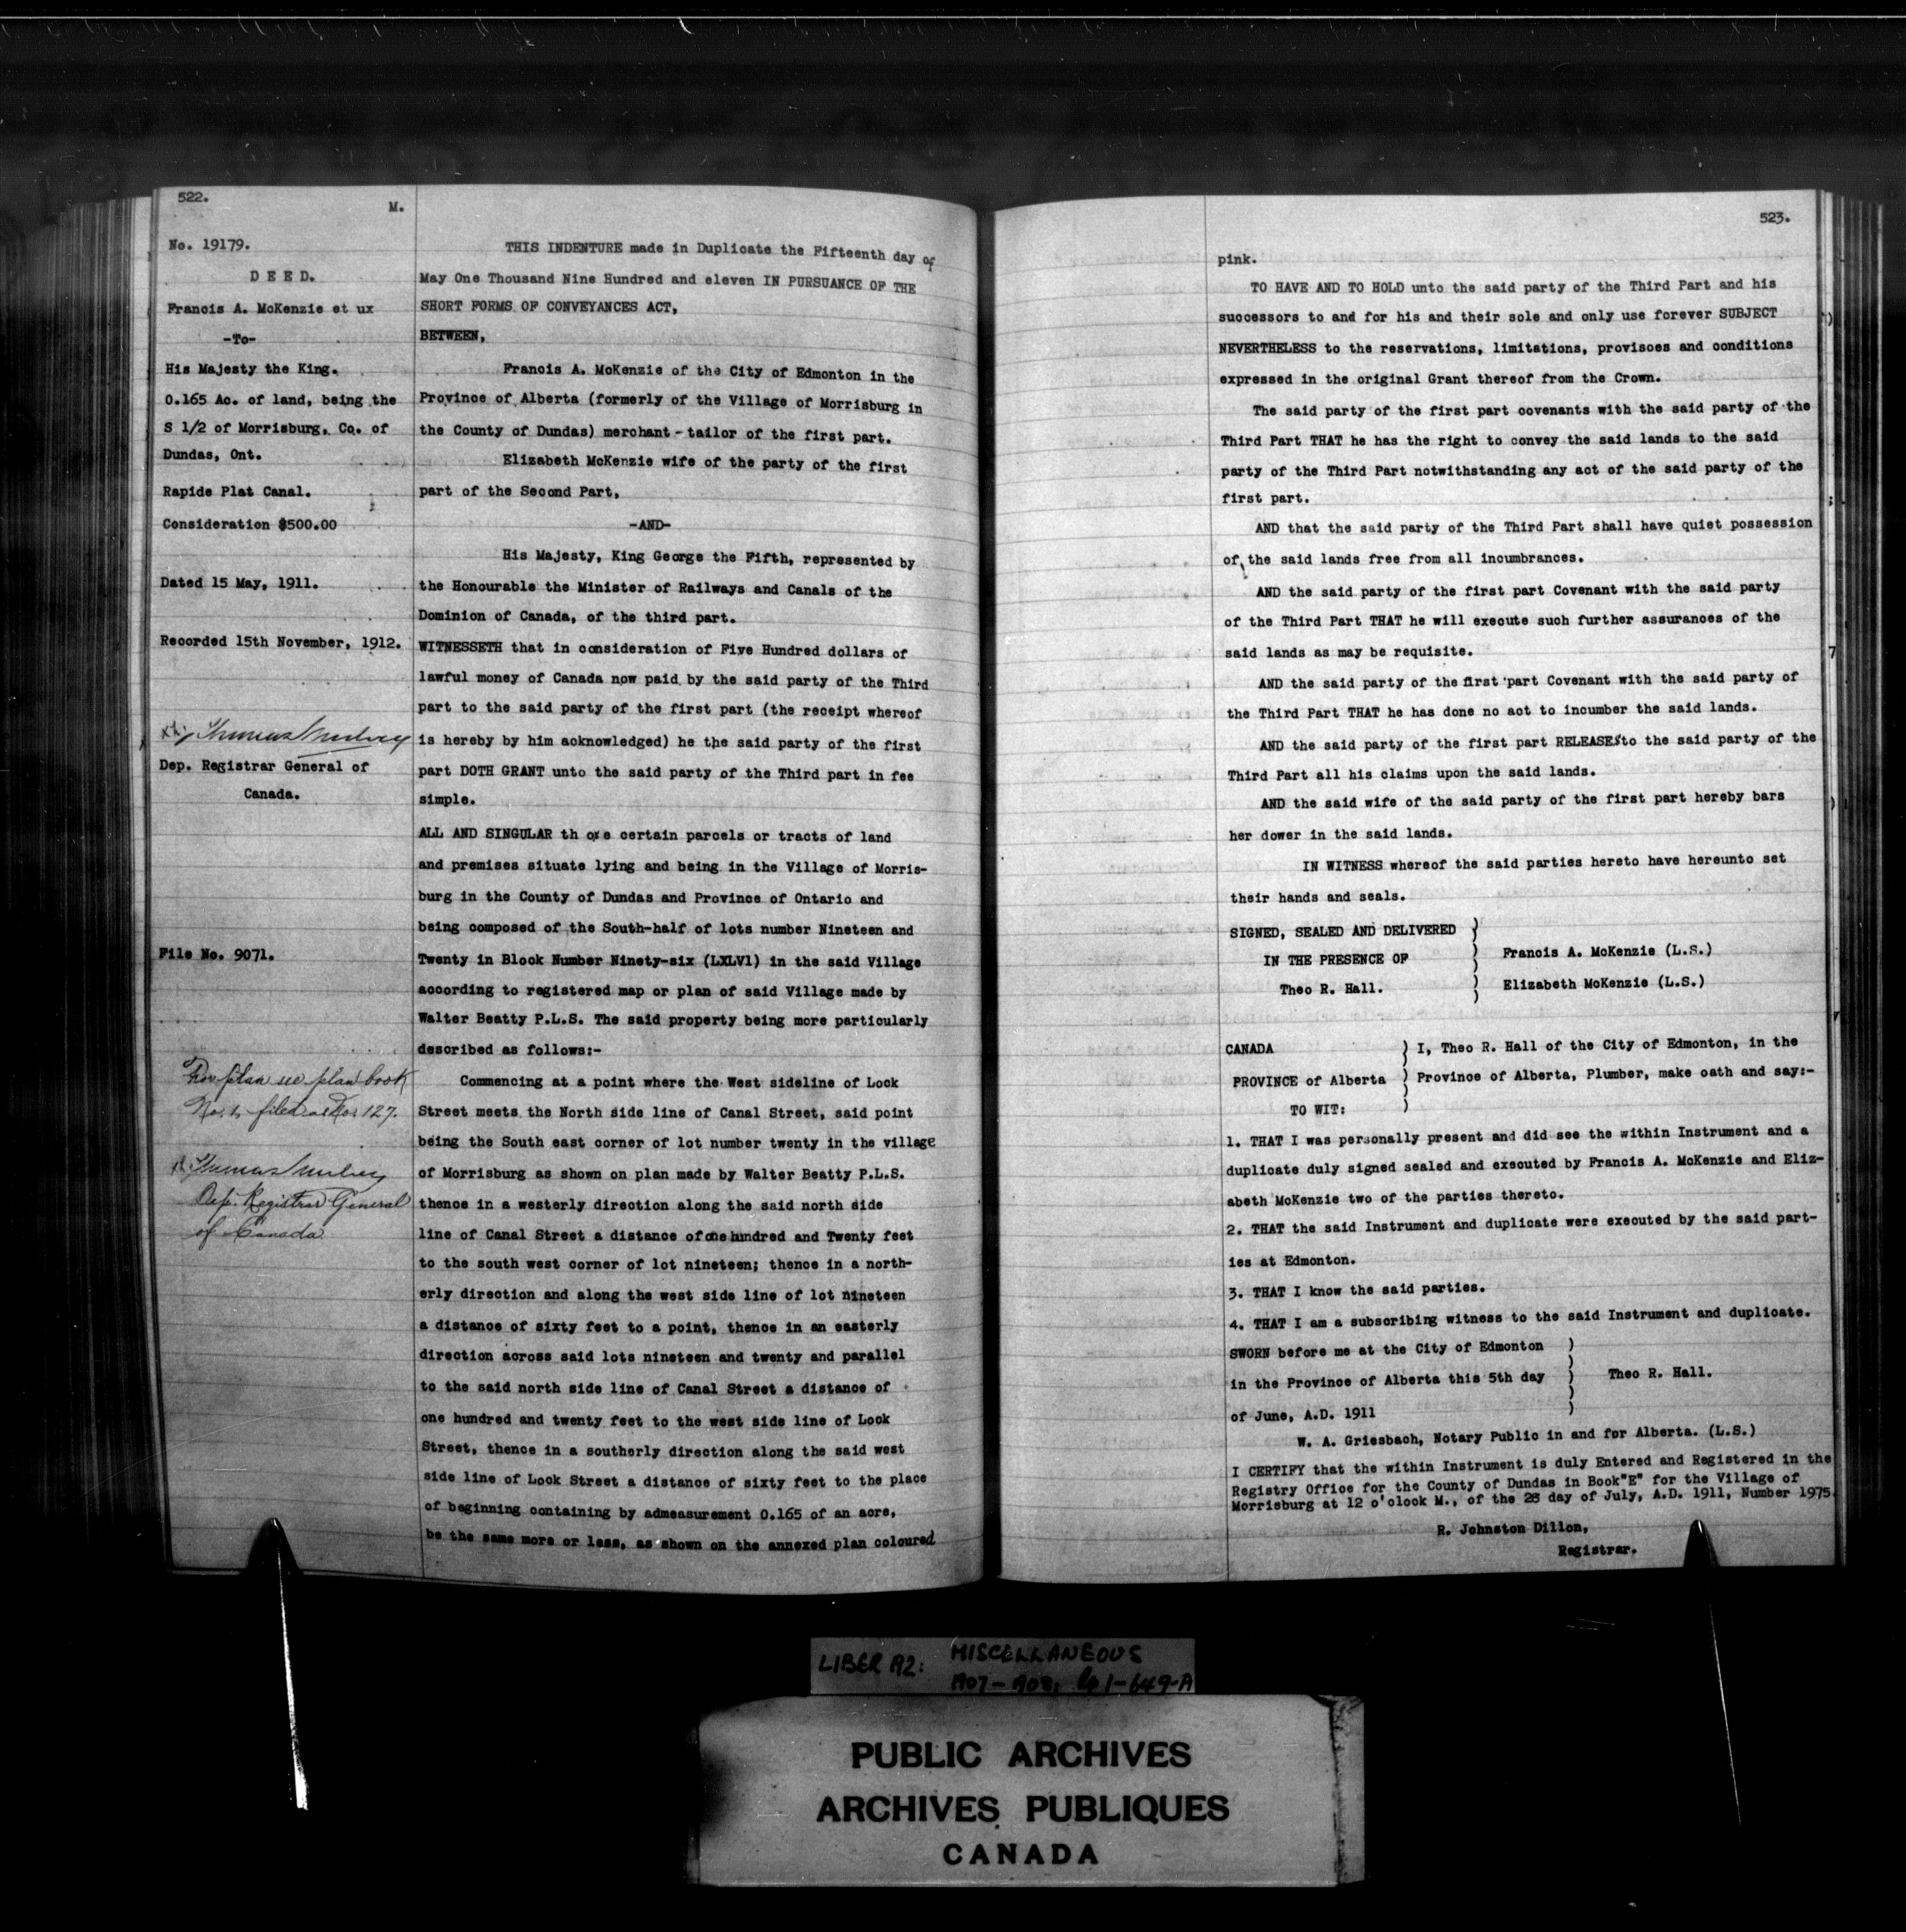 522.
M.
No. 19179.
D E E D.
Francis A. McKenzie et ux
-To-
His Majesty the King.
0.165 Ac. of land, being the
S 1/2 of Morrisburg, Co. of
Dundas, Ont.
Rapide Plat Canal.
Consideration $500.00
Dated 15 May, 1911.
Recorded 15th November, 1912.
Thomas Mulvey
Dep. Registrar General of
Canada.
File No. 9071.
For plan see plan book
No. 1, filed as No. 127.
Thomas Mulvey
Dep. Registrar General
of Canada
THIS INDENTURE made in Duplicate the Fifteenth day of
May One Thousand Nine Hundred and eleven IN PURSUANCE OF THE
SHORT FORMS OF CONVEYANCES ACT,
BETWEEN,
Francis A. McKenzie of the City of Edmonton in the
Province of Alberta (formerly of the Village of Morrisburg in
the County of Dundas) merchant-tailor of the first part.
Elizabeth McKenzie wife of the party of the first
part of the Second Part,
-AND-
His Majesty, King George the Fifth, represented by
the Honourable the Minister of Railways and Canals of the
Dominion of Canada, of the third part.
WITNESSETH that in consideration of Five Hundred dollars of
lawful money of Canada now paid by the said party of the Third
part to the said party of the first part (the receipt whereof
is hereby by him acknowledged) he the said party of the first
part DOTH GRANT unto the said party of the Third part in fee
simple.
ALL AND SINGULAR those certain parcels or tracts of land
and premises situate lying and being in the Village of Morris-
burg in the County of Dundas and Province of Ontario and
being composed of the South-half of lots number Nineteen and
Twenty in Block Number Ninety-six (LXLV1) in the said Village
according to registered map or plan of said Village made by
Walter Beatty P.L.S. The said property being more particularly
described as follows:-
Commencing at a point where the West sideline of Lock
Street meets the North side line of Canal Street, said point
being the South east corner of lot number twenty in the village
of Morrisburg as shown on plan made by Walter Beatty P.L.S.
thence in a westerly direction along the said north side
line of Canal Street a distance of one hundred and Twenty feet
to the south west corner of lot nineteen; thence in a north-
erly direction and along the west side line of lot nineteen
a distance of sixty feet to a point, thence in an easterly
direction across said lots nineteen and twenty and parallel
to the said north side line of Canal Street a distance of
one hundred and twenty feet to the west side line of Lock
Street, thence in a southerly direction along the said west
side line of Lock Street a distance of sixty feet to the place
of beginning containing by admeasurement 0.165 of an acre,
be the same more or less, as shown on the annexed plan coloured
523.
pink.
TO HAVE AND TO HOLD unto the said party of the Third Part and his
successors to and for his and their sole and only use forever SUBJECT
NEVERTHELESS to the reservations, limitations, provisoes and conditions
expressed in the original Grant thereof from the Crown.
The said party of the first part covenants with the said party of the
Third Part THAT he has the right to convey the said lands to the said
party of the Third Part notwithstanding any act of the said party of the
first part.
AND that the said party of the Third Part shall have quiet possession
of the said lands free from all incumbrances.
AND the said party of the first part Covenant with the said party
of the Third Part THAT he will execute such further assurances of the
said lands as may be requisite.
AND the said party of the first part Covenant with the said party of
the Third Part THAT he has done no act to incumber the said lands.
AND the said party of the first part RELEASES to the said party of the
Third Part all his claims upon the said lands.
AND the said wife of the said party of the first part hereby bars
her dower in the said lands.
IN WITNESS whereof the said parties hereto have hereunto set
their hands and seals.
SIGNED, SEALED AND DELIVERED )
IN THE PRESENCE OF ) Francis A. McKenzie (L.S.)
Theo R. Hall. ) Elizabeth McKenzie (L.S.)
CANADA ) I, Theo R. Hall of the City of Edmonton, in the
PROVINCE of Alberta ) Province of Alberta, Plumber, make oath and say:-
TO WIT: )
1. THAT I was personally present and did see the within Instrument and a
duplicate duly signed sealed and executed by Francis A. McKenzie and Eliz-
abeth McKenzie two of the parties thereto.
2. THAT the said Instrument and duplicate were executed by the said part-
ies at Edmonton.
3. THAT I know the said parties.
4. THAT I am a subscribing witness to the said Instrument and duplicate.
SWORN before me at the City of Edmonton )
in the Province of Alberta this 5th day ) Theo R. Hall.
of June, A.D. 1911 )
W. A. Griesbach, Notary Public in and for Alberta. (L.S.)
I CERTIFY that the within Instrument is duly Entered and Registered in the
Registry Office for the County of Dundas in Book"E" for the Village of
Morrisburg at 12 o'clock M., of the 28 day of July, A.D. 1911, Number 1975.
R. Johnston Dillon,
Registrar.
LIBER 192: MISCELLANEOUS
1907-1908:
PUBLIC ARCHIVES
ARCHIVES PUBLIQUES
CANADA